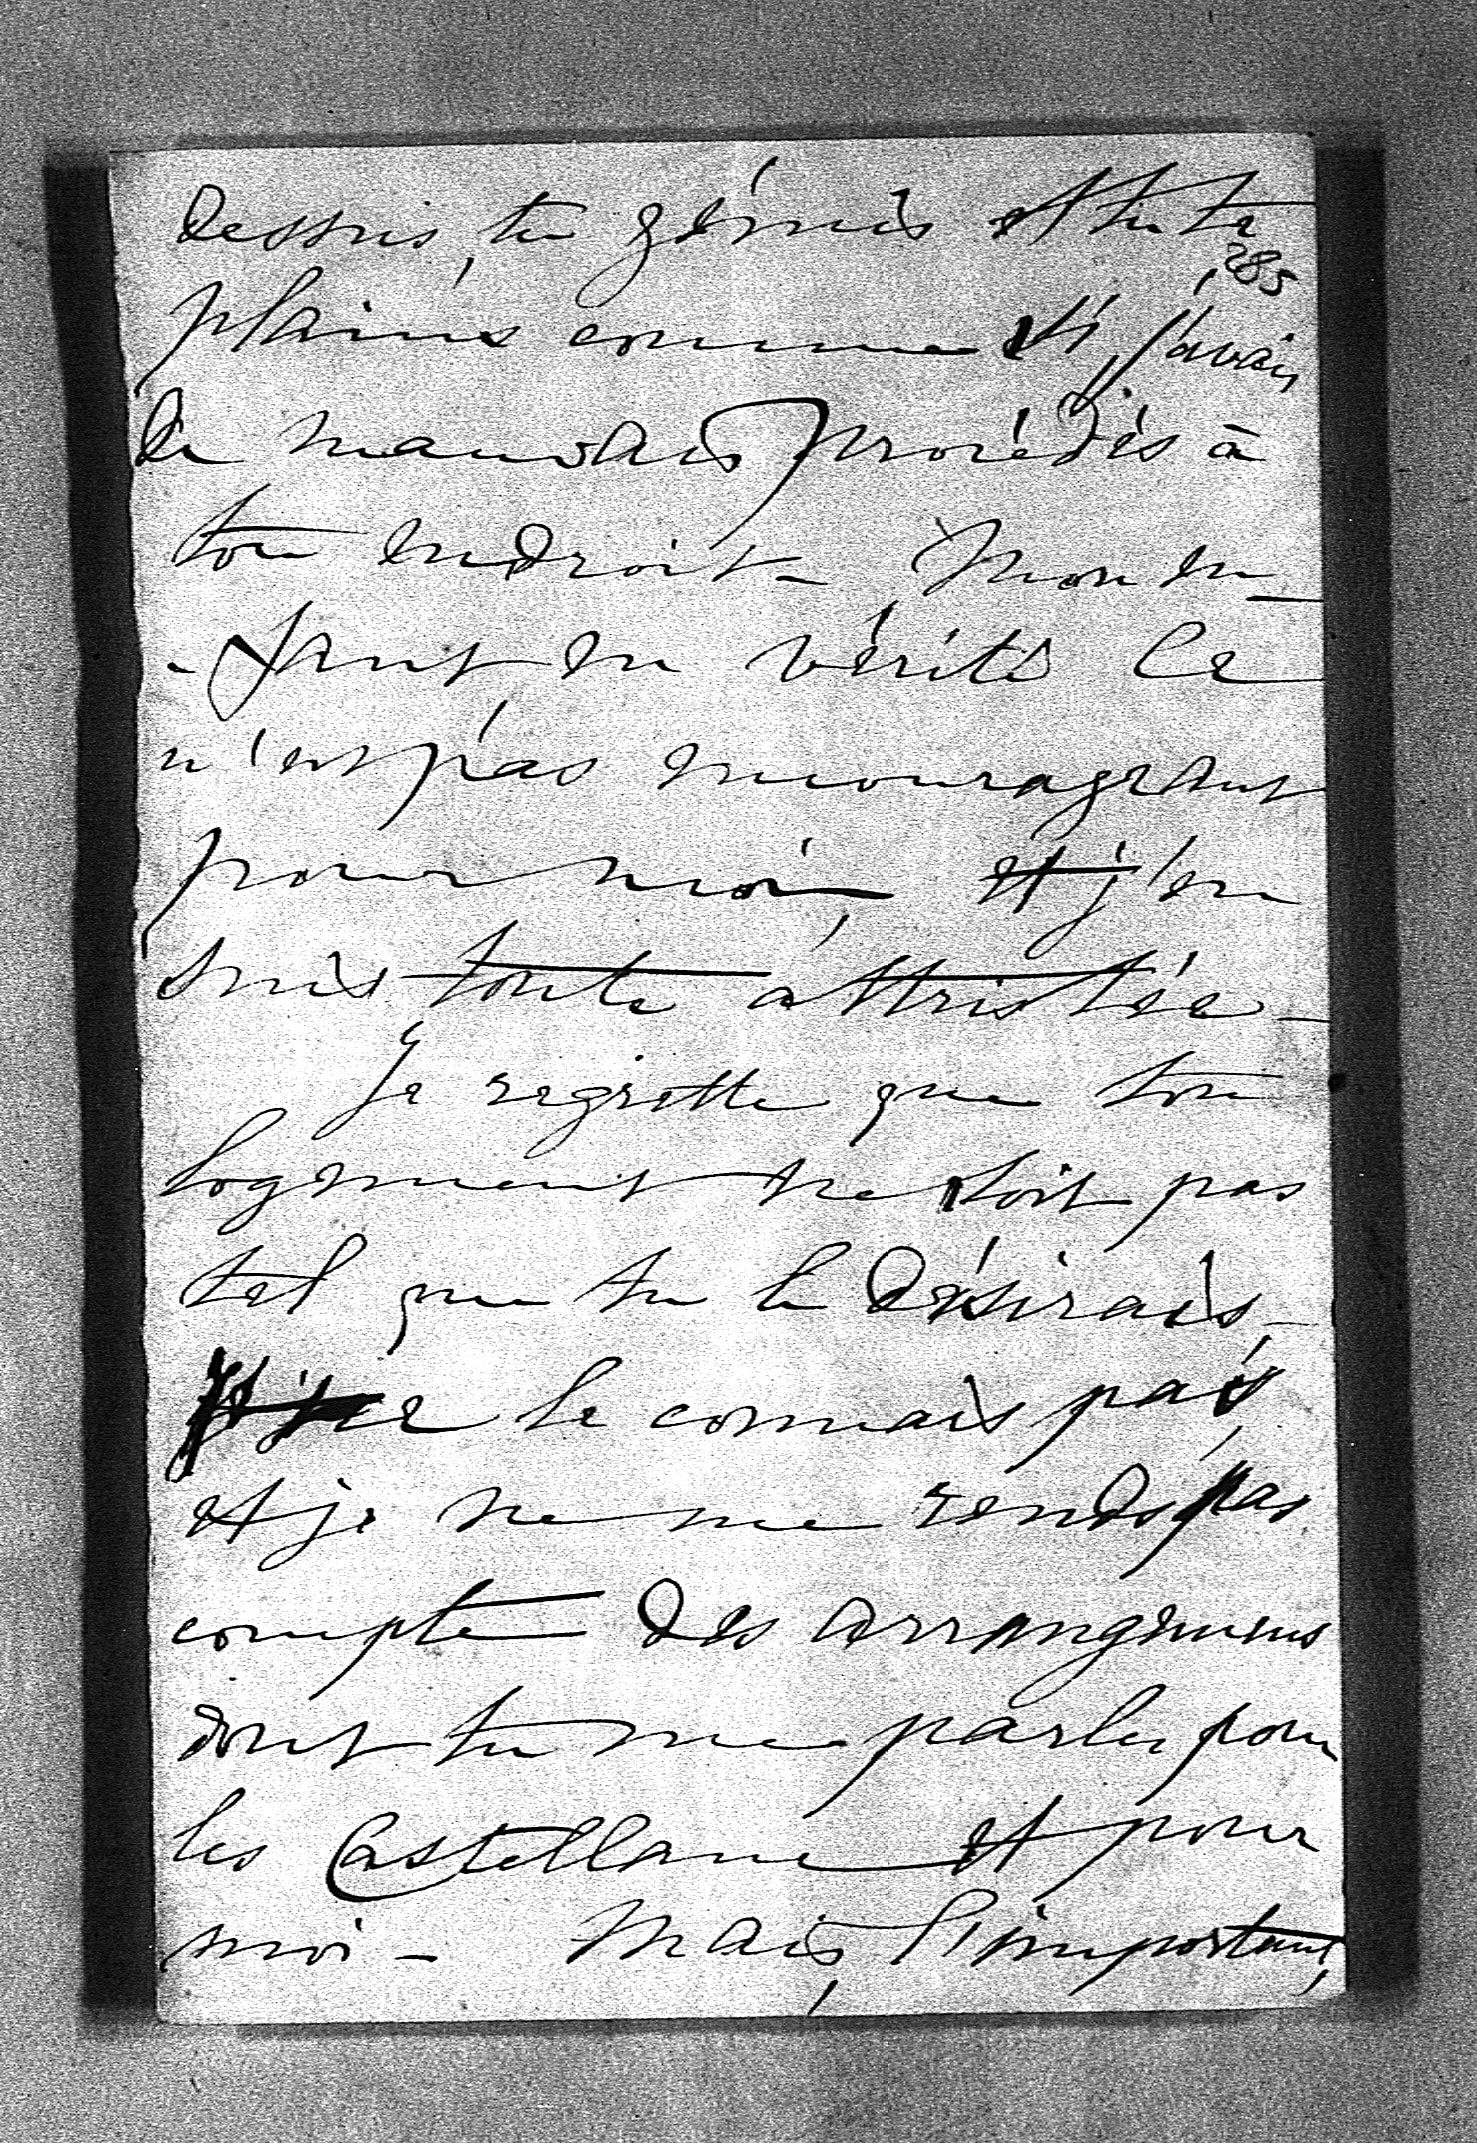 dessus, tu gémis et tu te
285
plains comme si j'avais
de mauvais procédés à
ton endroit – Mon en-
-fant en vérité ce
n'est pas encourageant
pour moi, et j'en
suis toute attristée –
Je regrette que ton
logement ne soit pas
tel que tu le désirais –
le connais pas,
et je ne me rends pas
compte des arrangemens
dont tu me parles pour
les Castellane et pour
moi – Mais, l'important,